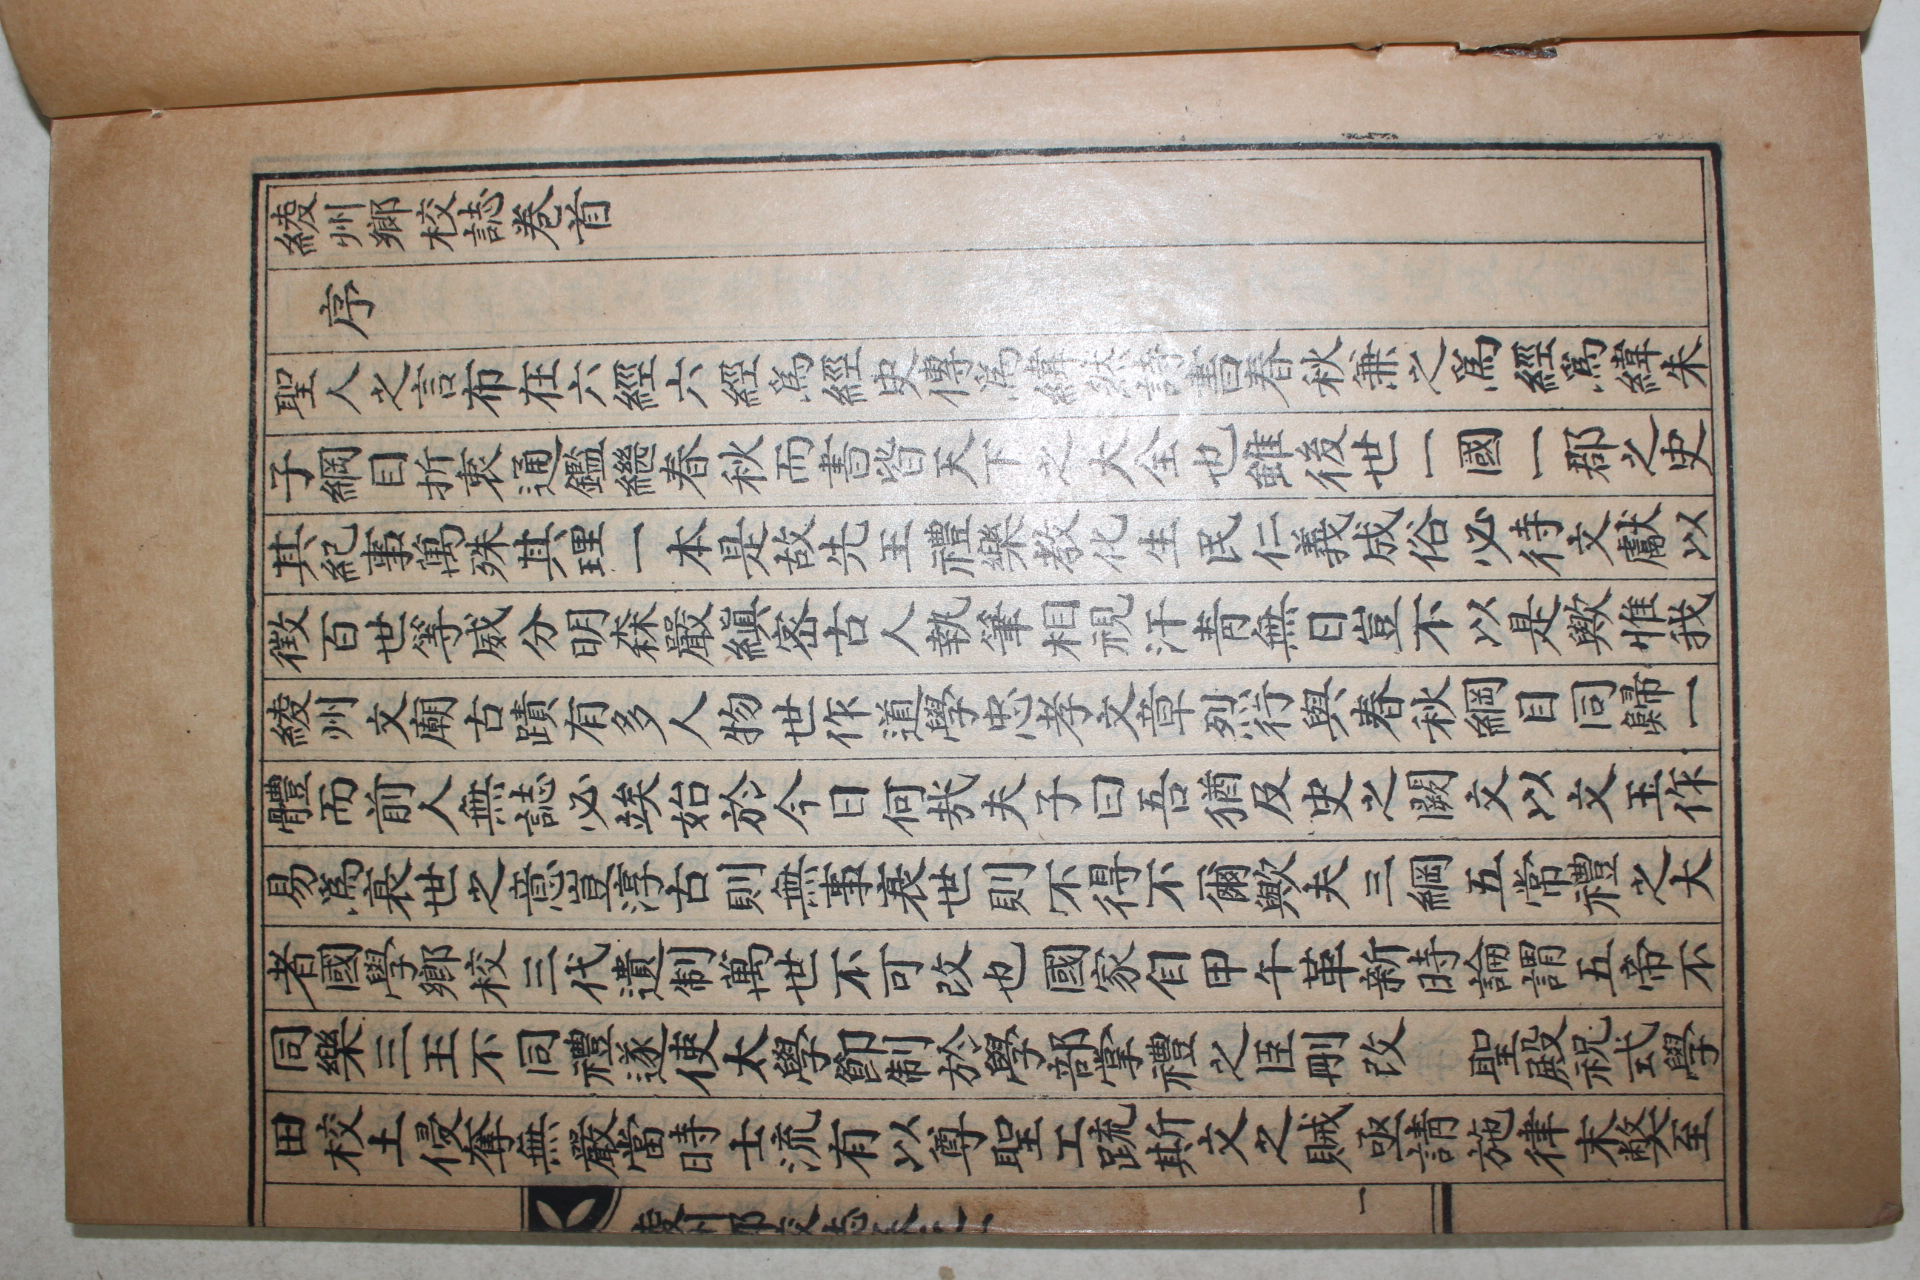 綾州鄕校誌卷首
序
聖人之言布在六經六經爲經史傳爲緯然詩書春秋兼之爲經爲緯朱
子綱目折衷通鑑繼春秋而書皆天下之大全也雖後世一國一郡之史
其紀事萬殊其理一本是故先王禮樂敎化生民仁義成俗必待文獻以
徵百世等威分明森嚴縝密古人執筆相視汗靑無日豈不以是歟惟我
綾州文廟古蹟有多人物世作道學忠孝文章烈行與春秋綱目同歸一
體而前人無誌必竢始於今日何哉夫子曰吾猶及史之闕文以文王作
易爲衰世之意豈淳古則無事衰世則不得不爾歟夫三綱五常禮之大
者國學鄕校三代遺制萬世不可改也國家自甲午革新時論謂五帝不
同樂三王不同禮遂使太學節制於學部掌禮之臣刪改 聖殿祝式學
田校土侵奪無嚴當時士流有以尊聖工疏斯文之賊亟請施律末弊至
一